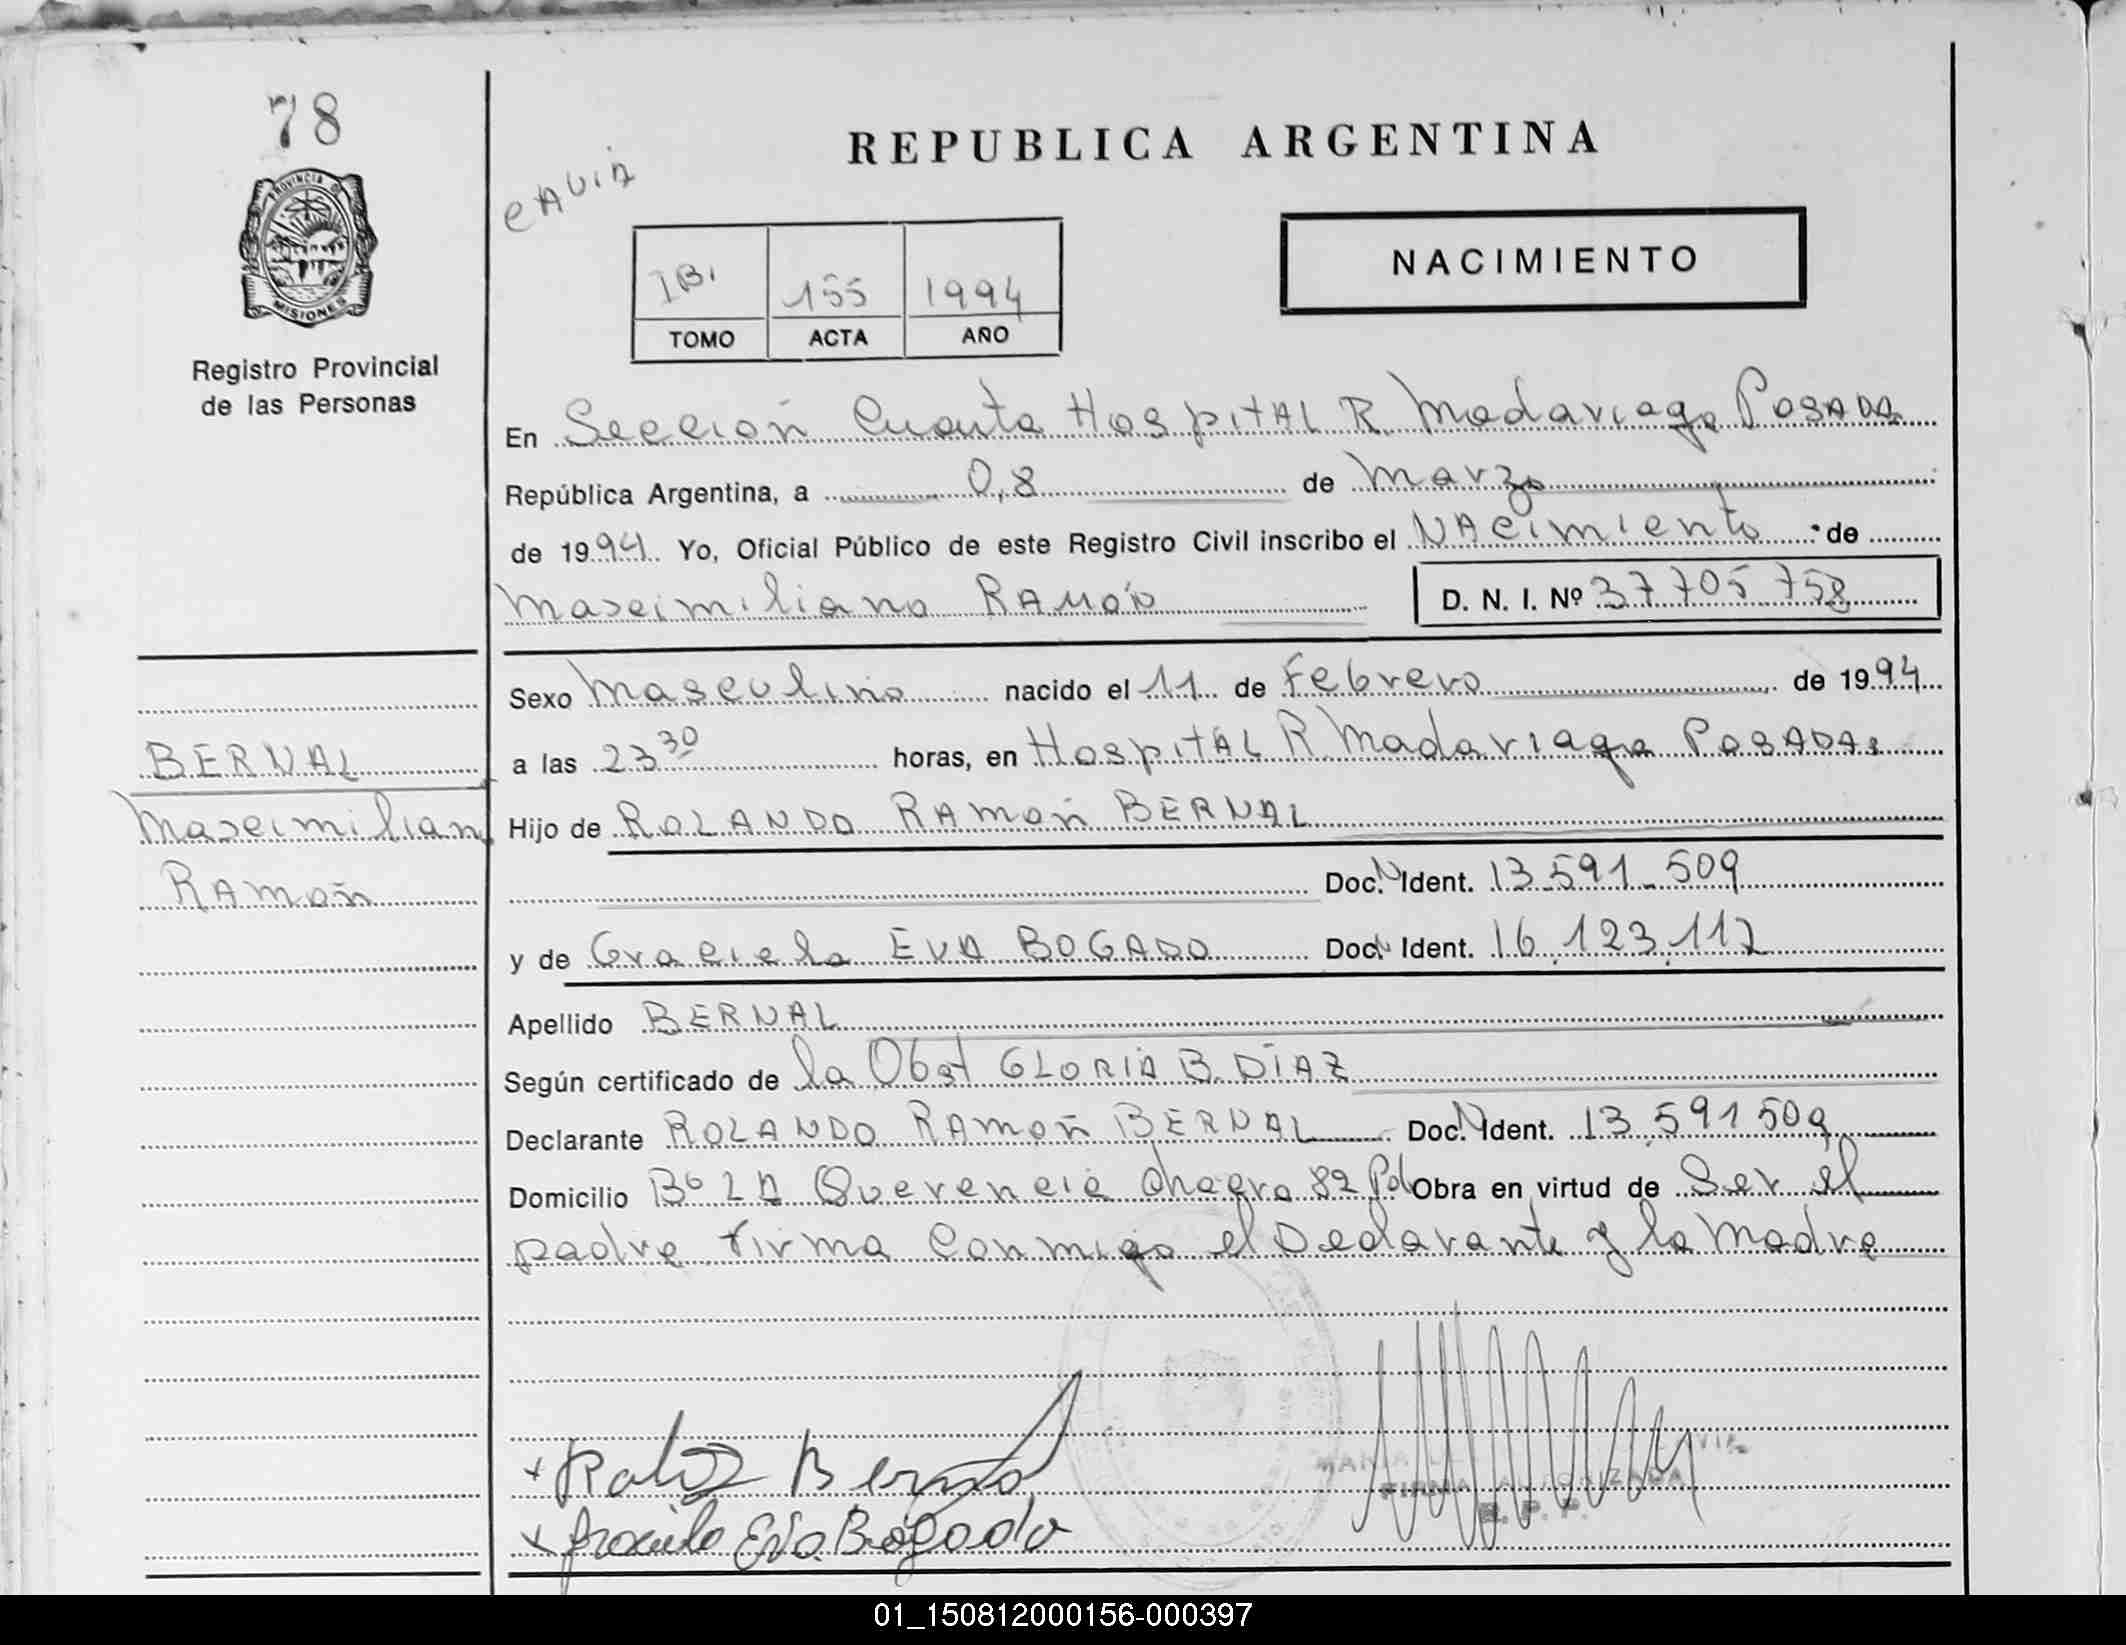 78
PROVINCIA DE
MISIONES
Registro Provincial
de las Personas
CAVIA
REPUBLICA ARGENTINA
NACIMIENTO
155 1994
TOMO ACTA AÑO
En Sección Cuarta Hospital R. Madariaga Posadas
República Argentina, a 0,8 de Marzo
de 1994 Yo, Oficial Público de este Registro Civil inscribo el Nacimiento de
Maxcimiliano Ramón D. N. I. Nº 37705758
Sexo Masculino nacido el 11 de Febrero de 1994
a las 23 30 horas, en Hospital R Madariaga Posadas
BERNAL
Maxcimiliano
Ramón
Hijo de ROLANDO RAMÓN BERNAL
Doc. N Ident. 13.591.509
y de Graciela EVA BOGADO Doc. N Ident. 16.123.117
Apellido BERNAL
Según certificado de la Obst GLORIA B. DIAZ
Declarante ROLANDO RAMÓN BERNAL Doc. N Ident. 13.591509
Domicilio Bº LA Querencia Chacra 82 Pdas Obra en virtud de Ser el
padre firma conmigo el Declarante y la Madre
Bernal
Graciela Eva Bogado
MARIA
FIRMA AUTORIZADA
R. P. P.
01_150812000156-000397